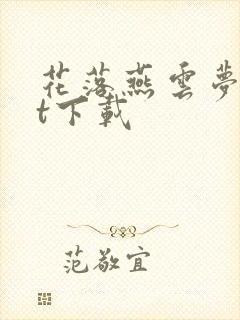 花落燕雲夢
t下載
范敬宜